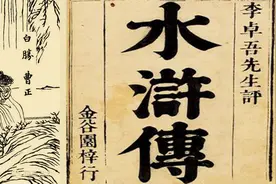 李卓吾先生評
水滸傳
金谷園梓行
白勝
曹正